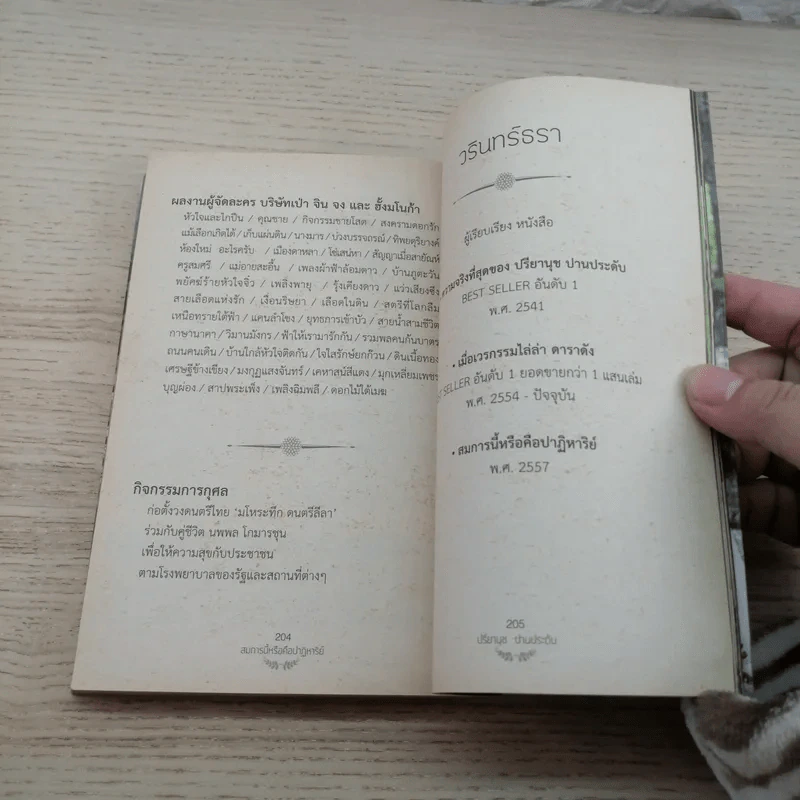 ผลงานผู้จัดละคร บริษัทเป่า จิน จง และ ฮั้งมโนก้า
หัวใจและไกปืน / คุณชาย / กิจกรรมชายโสด / สงครามดอกรัก
แม้เลือกเกิดได้ / เก็บแผ่นดิน / นางมาร / บ่วงบรรจถรณ์ / ทิพยดุริยางค์
ห้องใหม่ อะไรครับ / เมืองดาหลา / โซ่เสน่หา / สัญญาเมื่อสายัณห์
ครูสมศรี / แม่อายสะอื้น / เพลงผ้าฟ้าล้อมดาว / บ้านภูตะวัน
พยัคฆ์ร้ายหัวใจจิ๋ว / เพลิงพายุ / รุ้งเคียงดาว / แว่วเสียงซึง
สายเลือดแห่งรัก / เงื่อนริษยา / เลือดในดิน / สตรีที่โลกลืม
เหนือทรายใต้ฟ้า / แคนลำโขง / ยุทธการเข้าบัว / สายน้ำสามชีวิต
กาษานาคา / วิมานมังกร / ฟ้าให้เรามารักกัน / รวมพลคนกันบาตร
ถนนคนเดิน / บ้านใกล้หัวใจติดกัน / ไอใสรักษ์ยกก๊วน / ดินเนื้อทอง
เศรษฐีข้างเขียง / มงกุฎแสงจันทร์ / เคหาสน์สีแดง / มุกเหลี่ยมเพชร
บุญผ่อง / สาปพระเพ็ง / เพลิงฉิมพลี / ดอกไม้ใต้เมฆ
กิจกรรมการกุศล
ก่อตั้งวงดนตรีไทย 'มโหระทึก ดนตรีลีลา'
ร่วมกับคู่ชีวิต นพพล โกมารชุน
เพื่อให้ความสุขกับประชาชน
ตามโรงพยาบาลของรัฐและสถานที่ต่างๆ
204
สมการนี้หรือคือปาฏิหาริย์
วรินทร์ธรา
ผู้เรียบเรียง หนังสือ
ความจริงที่สุดของ ปรียานุช ปานประดับ
BEST SELLER อันดับ 1
พ.ศ. 2541
• เมื่อเวรกรรมไล่ล่า ดาราดัง
SELLER อันดับ 1 ยอดขายกว่า 1 แสนเล่ม
พ.ศ. 2554 - ปัจจุบัน
• สมการนี้หรือคือปาฏิหาริย์
พ.ศ. 2557
205
ปรียานุช ปานประดับ